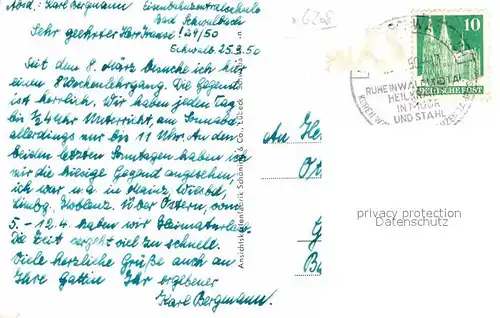 Absd.: Karl Bergmann Eisenbahnzentralschule
Bad Schwalbach
Sehr geehrter Herr Krause!
Schwalb. 25.3.50
Seit dem 8. März besuche ich hier
einen 8 Wochenlehrgang. Die Gegend
ist herrlich. Wir haben jeden Tag
bis 3/4 4 Uhr Unterricht, am Sonnabd
allerdings nur bis 11 Uhr. An den
beiden letzten Sonntagen haben ich
mir die hiesige Gegend angesehen,
ich war u a in Mainz, Wiesbd,
Limbg, Koblenz. Über Ostern, vom
5. - 12.4. haben wir Heimaturlaub.
Die Zeit vergeht viel zu schnell.
Viele herzliche Grüße auch an
Ihre Gattin Ihr ergebener
Karl Bergmann.
Ansichtskartenfabrik Schöning & Co., Lübeck
6208
SCHWA
50
RUHE IN WALD U. STAL
HEILKRAFT
IN MOOR
UND STAHL
10
DEUTSCHE POST
An He
privacy protection
Datenschutz